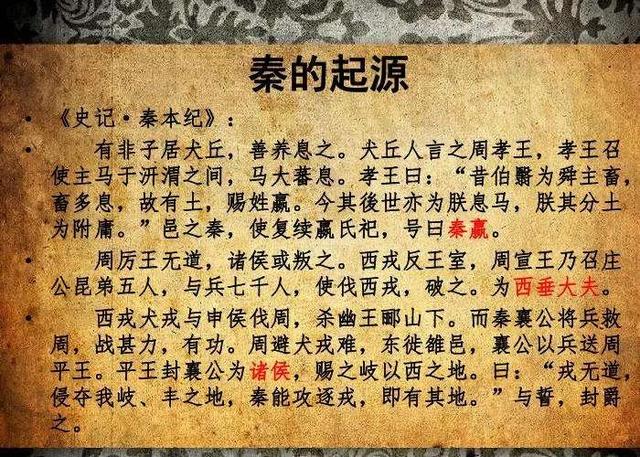 秦的起源
• 《史记·秦本纪》:
• 有非子居犬丘，善养息之。犬丘人言之周孝王，孝王召
使主马于汧渭之间，马大蕃息。孝王曰：“昔伯翳为舜主畜，
畜多息，故有土，赐姓嬴。今其後世亦为朕息马，朕其分土
为附庸。”邑之秦，使复续嬴氏祀，号曰秦嬴。
• 周厉王无道，诸侯或叛之。西戎反王室，周宣王乃召庄
公昆弟五人，与兵七千人，使伐西戎，破之。为西垂大夫。
• 西戎犬戎与申侯伐周，杀幽王郦山下。而秦襄公将兵救
周，战甚力，有功。周避犬戎难，东徙雒邑，襄公以兵送周
平王。平王封襄公为诸侯，赐之岐以西之地。曰：“戎无道，
侵夺我岐、丰之地，秦能攻逐戎，即有其地。”与誓，封爵
之。